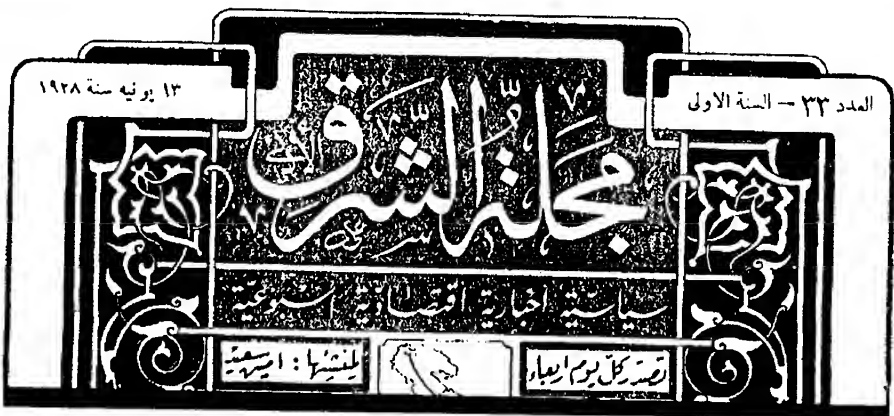 العدد ٣٣ — السنة الاولى
١٣ يونيه سنة ١٩٢٨
مجلة الشرق الأدنى
سياسية اخبارية اقتصادية اسبوعية
تصدر كل يوم اربعاء
لمنشئها : امين سعيد